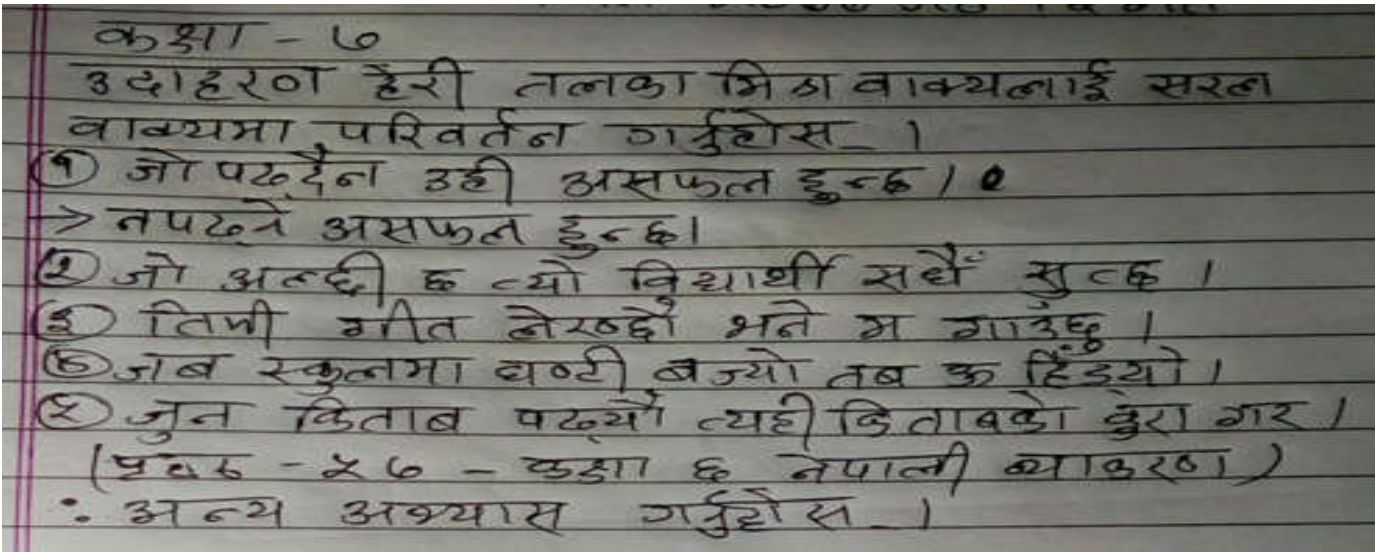 कक्षा - ७
उदाहरण हेरी तलका मिश्र वाक्यलाई सरल
वाक्यमा परिवर्तन गर्नुहोस् ।
१ जो पढ्दैन उही असफल हुन्छ ।
→ नपढ्ने असफल हुन्छ।
२ जो अल्छी छ त्यो विद्यार्थी सधैँ सुत्छ ।
३ तिमी गीत लेख्छौ भने म गाउँछु ।
४ जब स्कुलमा घण्टी बज्यो तब ऊ हिँड्यो ।
५ जुन किताब पढ्यौ त्यही किताबको कुरा गर ।
(पृष्ठ - ५७ - कक्षा ६ नेपाली व्याकरण)
: अन्य अभ्यास गर्नुहोस् ।